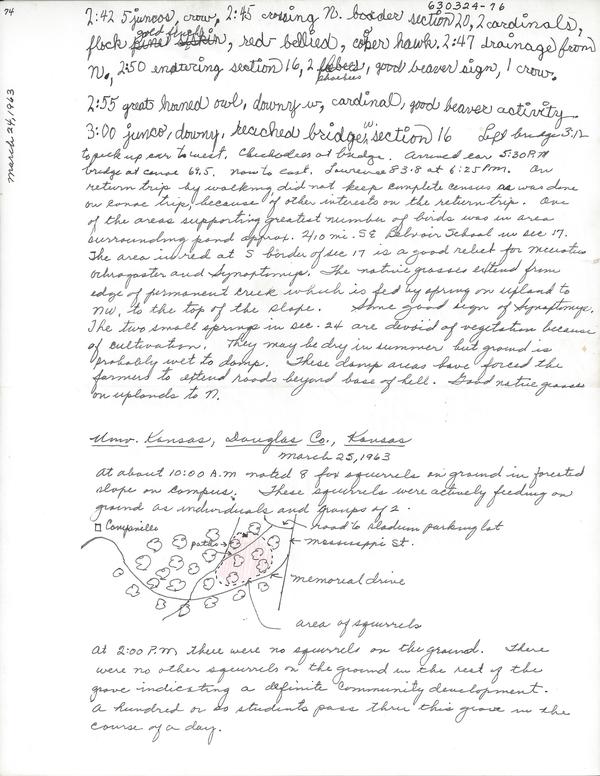 74
630324-76
March 24, 1963
2:42 5 juncos, crow, 2:45 crossing N. border section 20, 2 cardinals,
flock gold finch, red-bellied, coper hawk. 2:47 drainage from
N., 2:50 entering section 16, 2 phoebies, good beaver sign, 1 crow.
2:55 great horned owl, downy w, cardinal, good beaver activity.
3:00 junco, downy, reached bridge, W. section 16 Left bridge 3:12
to pick up car to west. Chickadees at bridge. Arrived car 5:30 P.M
bridge at canoe 69.5. now to east. Lawrence 83.8 at 6:25 P.M. On
return trip by walking did not keep complete census as was done
on canoe trip, because of other interests on the return trip. One
of the areas supporting greatest number of birds was in area
surrounding pond approx. 2/10 mi. SE Belvoir School in sec 17.
The area in red at S border of sec 17 is a good relict for Microtus
ochrogaster and Synaptomys. The native grasses extend from
edge of permanent creek which is fed by spring on upland to
NW, to the top of the slope. Some good sign of Synaptomys.
The two small springs in sec. 24 are devoid of vegetation because
of cultivation. They may be dry in summer but ground is
probably wet to damp. These damp areas have forced the
farmers to extend roads beyond base of hill. Good native grasses
on uplands to N.
Univ. Kansas, Douglas Co., Kansas
March 25, 1963
At about 10:00 A.M noted 8 fox squirrels on ground in forested
slope on campus. These squirrels were actively feeding on
ground as individuals and groups of 2.
Campanile
path
road to stadium parking lot
Mississippi St.
memorial drive
area of squirrels
At 2:00 P.M there were no squirrels on the ground. There
were no other squirrels on the ground in the rest of the
grove indicating a definite community development.
A hundred or so students pass thru this grove in the
course of a day.